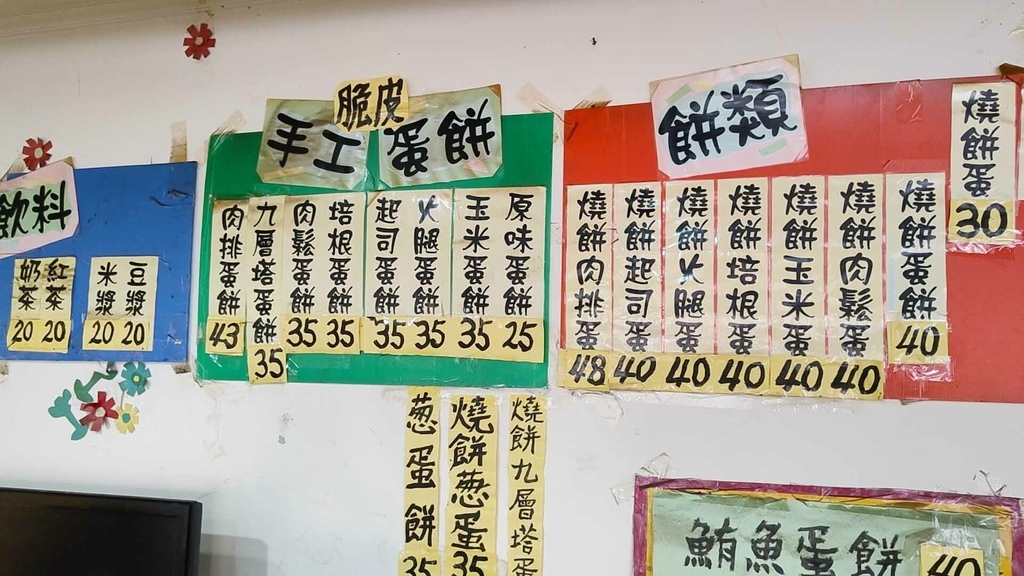 飲料
豆漿 20
米漿 20
紅茶 20
奶茶 20
脆皮
手工蛋餅
原味蛋餅 25
玉米蛋餅 35
火腿蛋餅 35
起司蛋餅 35
培根蛋餅 35
肉鬆蛋餅 35
九層塔蛋餅 35
肉排蛋餅 43
餅類
燒餅蛋 30
燒餅蛋餅 40
燒餅肉鬆蛋 40
燒餅玉米蛋 40
燒餅培根蛋 40
燒餅火腿蛋 40
燒餅起司蛋 40
燒餅肉排蛋 48
燒餅九層塔蛋
燒餅葱蛋 35
葱蛋餅 35
鮪魚蛋餅 40